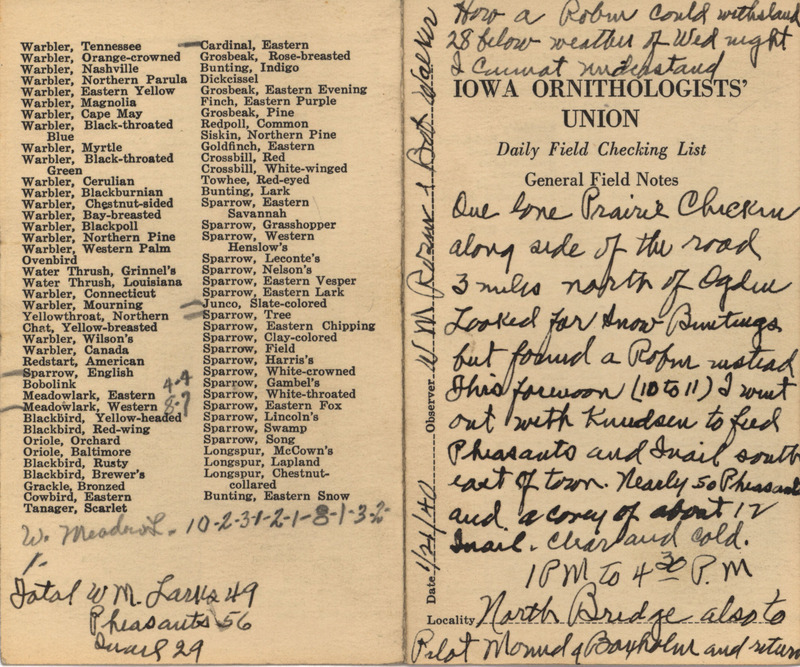 Warbler, Tennessee
Warbler, Orange-crowned
Warbler, Nashville
Warbler, Northern Parula
Warbler, Eastern Yellow
Warbler, Magnolia
Warbler, Cape May
Warbler, Black-throated
Blue
Warbler, Myrtle
Warbler, Black-throated
Green
Warbler, Cerulian
Warbler, Blackburnian
Warbler, Chestnut-sided
Warbler, Bay-breasted
Warbler, Blackpoll
Warbler, Northern Pine
Warbler, Western Palm
Ovenbird
Water Thrush, Grinnel's
Water Thrush, Louisiana
Warbler, Connecticut
Warbler, Mourning
Yellowthroat, Northern
Chat, Yellow-breasted
Warbler, Wilson's
Warbler, Canada
Redstart, American
Sparrow, English
Bobolink
Meadowlark, Eastern 4-4
Meadowlark, Western 8-7
Blackbird, Yellow-headed
Blackbird, Red-wing
Oriole, Orchard
Oriole, Baltimore
Blackbird, Rusty
Blackbird, Brewer's
Grackle, Bronzed
Cowbird, Eastern
Tanager, Scarlet
Cardinal, Eastern
Grosbeak, Rose-breasted
Bunting, Indigo
Dickcissel
Grosbeak, Eastern Evening
Finch, Eastern Purple
Grosbeak, Pine
Redpoll, Common
Siskin, Northern Pine
Goldfinch, Eastern
Crossbill, Red
Crossbill, White-winged
Towhee, Red-eyed
Bunting, Lark
Sparrow, Eastern
Savannah
Sparrow, Grasshopper
Sparrow, Western
Henslow's
Sparrow, Leconte's
Sparrow, Nelson's
Sparrow, Eastern Vesper
Sparrow, Eastern Lark
Junco, Slate-colored
Sparrow, Tree
Sparrow, Eastern Chipping
Sparrow, Clay-colored
Sparrow, Field
Sparrow, Harris's
Sparrow, White-crowned
Sparrow, Gambel's
Sparrow, White-throated
Sparrow, Eastern Fox
Sparrow, Lincoln's
Sparrow, Swamp
Sparrow, Song
Longspur, McCown's
Longspur, Lapland
Longspur, Chestnut-
collared
Bunting, Eastern Snow
W. Meadow L. 10-2-3-1-2-1-8-1-3-2-
1-
Total W M. Larks 49
Pheasants 56
Quail 29
How a Robin could withstand
28 below weather of Wed night
I cannot understand
IOWA ORNITHOLOGISTS'
UNION
Daily Field Checking List
General Field Notes
One lone Prairie Chicken
along side of the road
3 miles north of Ogden
Looked for Snow Buntings
but found a Robin instead
This forenoon (10 to 11) I went
out with Knudsen to feed
Pheasants and Quail south
east of town. Nearly 50 Pheasant
and a covey of about 12
Quail. Clear and cold.
1 PM to 4 30 P.M
Locality North Bridge also to
Pilot Mound & Boxholm and return
Date 1/21/40 Observer W M Rosene & Bob Walker